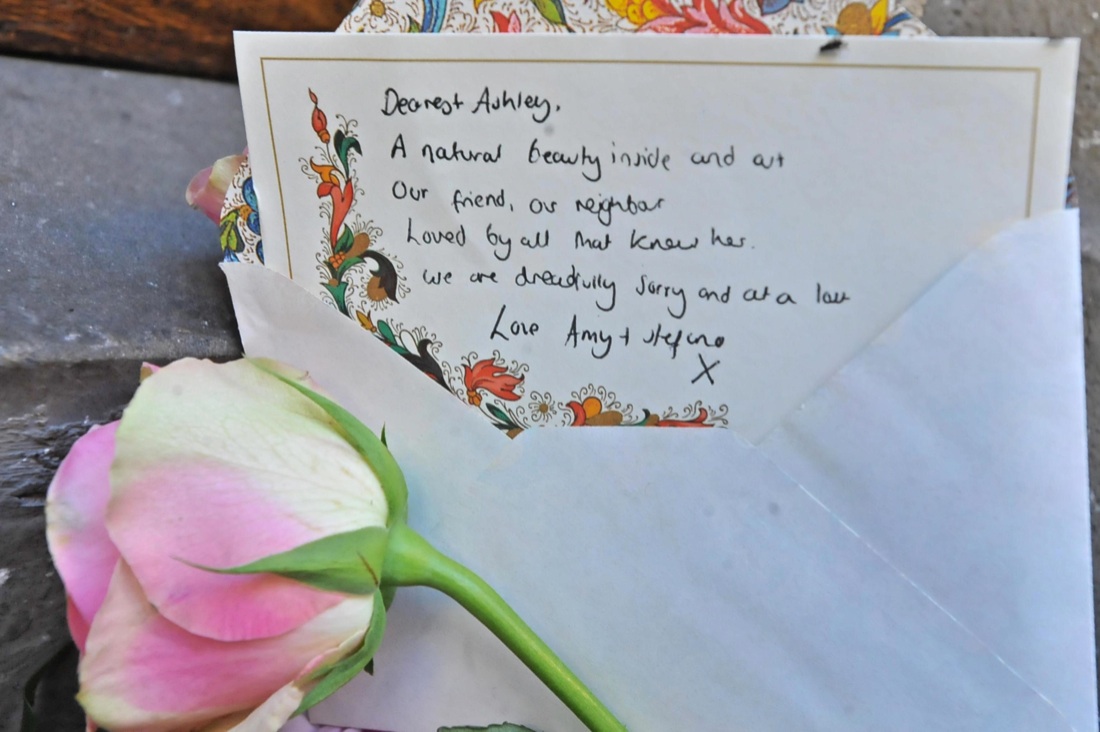 Dearest Ashley,
A natural beauty inside and out
Our friend, our neighbor
Loved by all that knew her.
We are dreadfully sorry and at a loss
Love Amy + Stefano
X